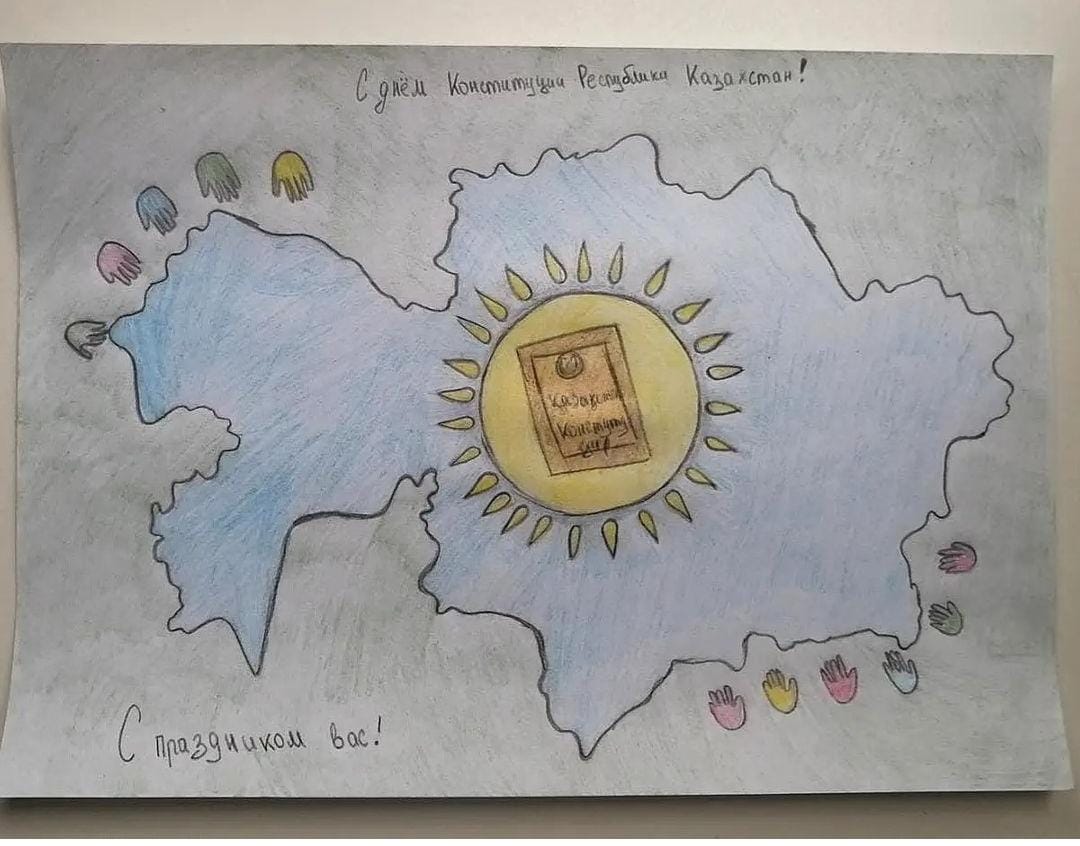 С днём Конституции Республики Казахстан!
Конститу
С праздником вас!